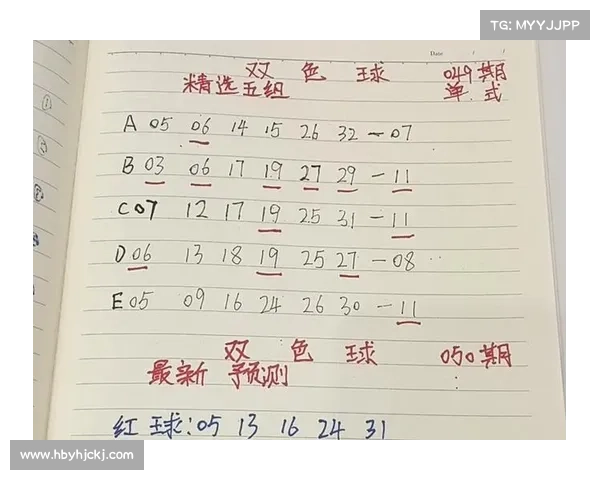 TG: MYYJJPP
Date
双 色 球 049期
精选五组 单.式
A 05 06 14 15 26 32 - 07
B 03 06 17 19 27 29 - 11
C 07 12 17 19 25 31 - 11
D 06 13 18 19 25 27 - 08
E 05 09 16 24 26 30 - 11
双 色 球 050期
最新 预测
红球: 05 13 16 24 31
www.hbyhjckj.com